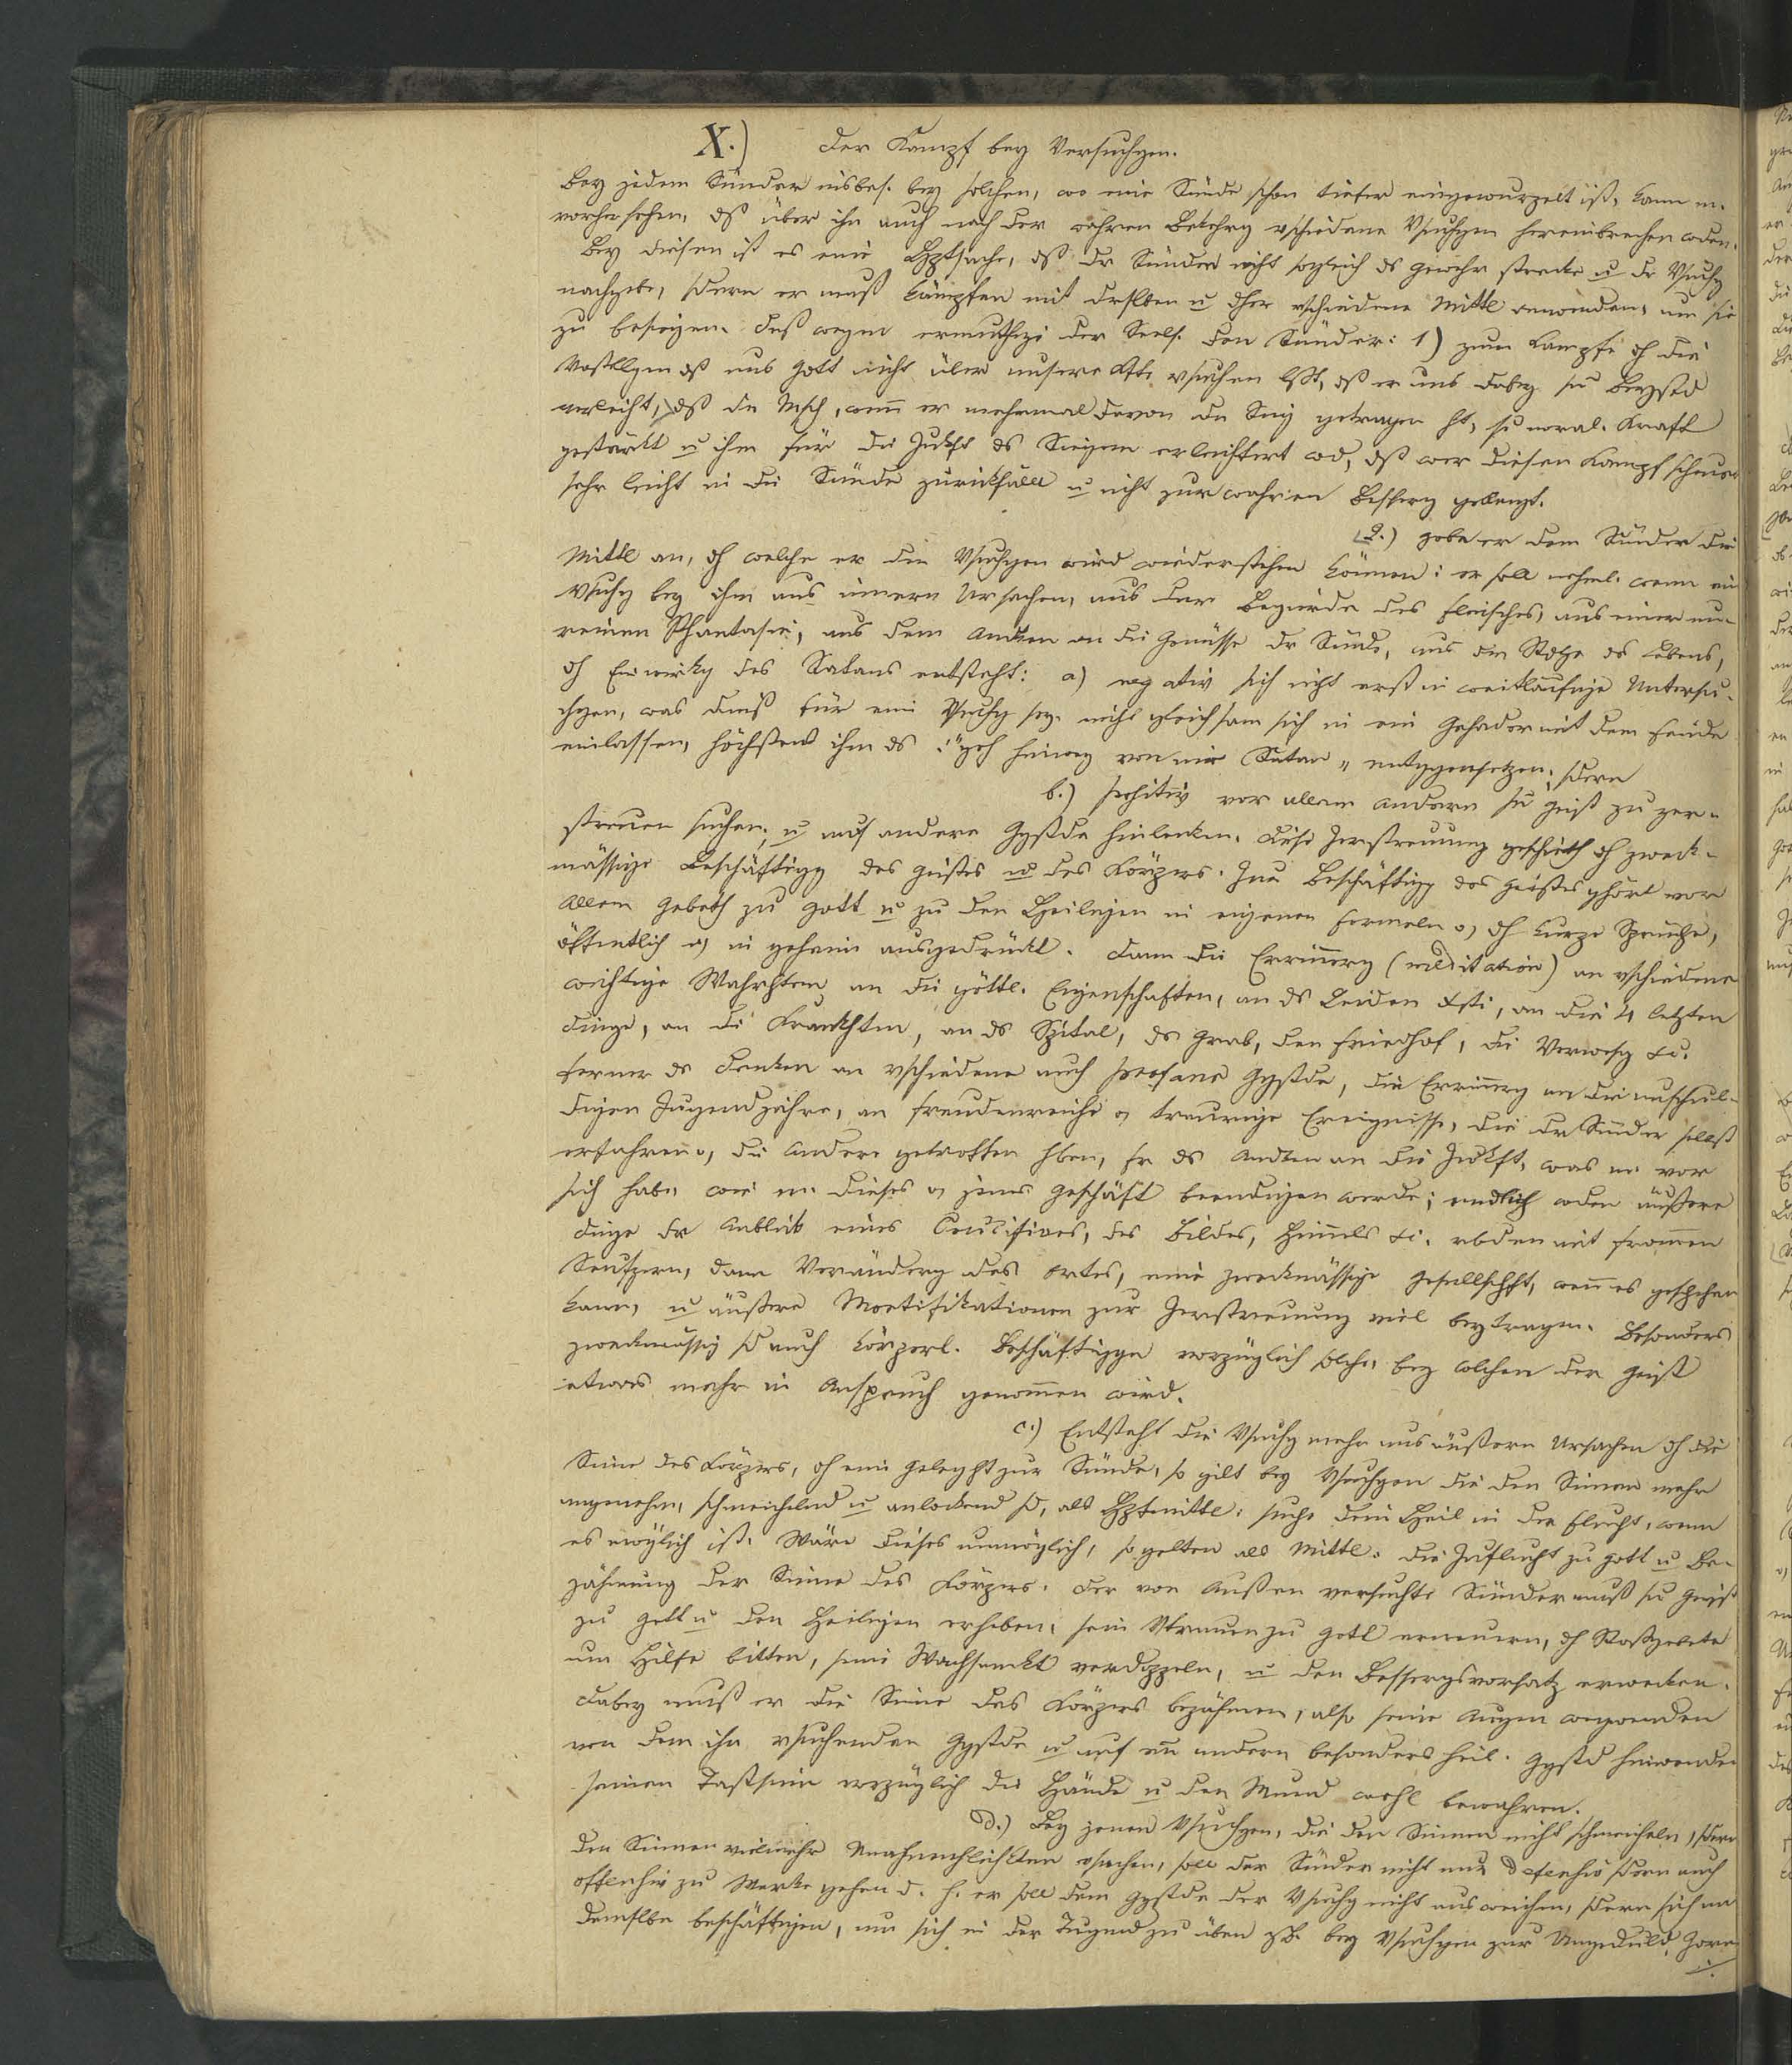 X.) Der Kampf bey Versuchgen.
Bey jedem Sünder insbes. bey solchen, wo eine Sünde schon tiefer eingewurzelt ist, kann m.
vorhersehen, dß über ihn auch nach der wahren Bekehrg vschiedene Vsuchgen hereinbrechen wden.
Bey diesen ist es eine Hptsache, dß dr Sünder nicht sogleich ds Gewehr strecke u dr Vsuchg
nachgebe, sdern er muß kämpfen mit drslben u dher vschiedene Mittl anwenden, um sie
zu besiegen. Deß wegen ermuthige der Seels. den Sünder: 1) zum Kampfe dh die
Vostellgen dß uns Gott nicht über unsere Kfte vsuchen lßt, dß er uns dabey sn Beystd
verleiht, dß dr Msch, wenn er mehrmal davon dn Sieg getragen ht, sn moral. Kraft
gestärkt u ihm für die Zukft ds Siegen erleichtert wd, dß wer diesen Kampf scheuet
sehr leicht in die Sünde zurückfällt u nicht zur wahren Besserg gelangt.
2.) gebe er dem Sünder die
Mittl an, dh welche er den Vsuchgen wird wiederstehen können: er soll nehml. wenn eine
Vsuchg bey ihm aus innern Ursachen, aus der Begierde des Fleisches, aus einer un-
reinen Phantasie, aus dem Andken an die Genüsse dr Sünde, aus dem Stolze ds Lebens,
dh Einwirkg des Satans entsteht: a) negativ sich nicht erst in weitläufige Untersu-
chgen, was dieß für eine Vsuchg sey, nicht gleichsam sich in ein Gehader mit dem Feinde
einlassen, höchstens ihm ds: "geh hinweg von mir Satan" entggensetzen; sdern
b.) positiv vor allem andern sn Geist zu zer-
streuen suchen, u auf andere Ggstde hinlenken. Diese Zerstreuung geschieht dh zweck-
mässige Beschäftigg des Geistes u des Körpers. Zur Beschäftigg des Geistes ghört vor
Allem Gebeth zu Gott u zu den Heiligen in eigenen Formeln o, dh kurze Sprüche,
öffentlich o, in geheim ausgedrückt. Dann die Errinnerg (meditation) an vschiedene
wichtige Wahrhten an die göttl. Eigenschaften, an ds Leiden Xsti, an die 4 letzten
Dinge, an die Krankhten, an ds Spital, ds Grab, den Friedhof, die Verwesg &c.
ferner ds Denken an vschiedene auch profane Ggstde, die Errinnerg an die unschul-
digen Jugendjahre, an freudenreiche o, traurige Ereignisse, die dr Sünder selbst
erfahren o, die Andere getroffen hben, fr ds Andken an die Zukft, was m. vor
sich habe wie m. dieses o, jenes Geschäft beendigen werde; endlich wden äußere
Dinge dr Anblick eines Crucifixes, des Bildes, Himmels &c. vbden mit frommen
Seufzern, dann Veränderg des Ortes, eine zweckmässige Gesellschft, wenn es geschehen
kann, u äußere Mortifikationen zur Zerstreuung viel beytragen. Besonders
zweckmässig sd auch körperl. Beschäftiggn vorzüglich solche, bey wlchen der Geist
etwas mehr in Anspruch genommen wird.
c.) Entsteht die Vsuchg mehr aus äußern Ursachen dh die
Sinne des Körpers, dh eine Geleghht zur Sünde, so gilt bey Vsuchgen die den Sinnen mehr
angenehm, schmeichelnd u anlockend sd, als Hptmittl: suche dein Heil in der Flucht, wenn
es möglich ist. Wäre dieses unmöglich, so gelten als Mittl: die Zuflucht zu Gott u Be-
zähmung der Sinne des Körpers. Der von Außen versuchte Sünder muß sn Geist
zu Gott u den Heiligen erheben, sein Vtrauen zu Gott erneuern, dh Stoßgebete
um Hilfe bitten, seine Wachsamkt verdoppeln, u den Bessergsvorsatz erwecken.
Dabey muß er die Sinne des Körpers bezähmen, also seine Augen wegwenden
von dem ihn vsuchenden Ggstde u auf enn andern besonders heil. Ggstd hinwenden
seinen Tastsinn vorzüglich die Hände u den Mund wohl bewahren.
d.) Bey jenen Vsuchgen, die den Sinnen nicht schmeicheln, sdern
den Sinnen vielmehr Unannehmlichkten vsachen, soll der Sünder nicht nur defensiv sdern auch
offensiv zu Werke gehen d. h. er soll dem Ggstde der Vsuchg nicht ausweichen, sdern sich mit
demslben beschäftigen, um sich in der Tugend zu üben zB. bey Vsuchgen zur Ungeduld, Zorn